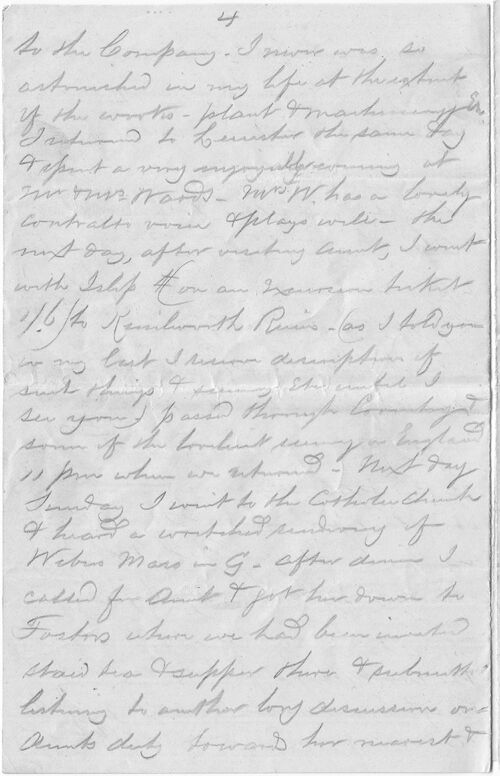 4
to the Company. I never was so
astonished in my life at the extent
of the works - plant & machinery &c.
I returned to Leicester the same day
& spent a very enjoyable evening at
Mr & Mrs Wards - Mrs W. has a lovely
contralto voice & plays well - the
next day, after visiting Aunt, I went
with Islip (on an Excursion ticket
1/6) to Kenilworth Ruins - (as I told you
in my last I reserve description of
such things & scenery &c until I
see you) passed through Coventry &
some of the loveliest scenery in England
11 pm when we returned - Next day
Sunday I went to the Catholic Church
& heard a wretched rendering of
Webers Mass in G - after dinner I
called for Aunt & got her down to
Fosters where we had been invited
staid tea & supper there &
listening to another long discussion on
Aunts duty toward her nearest &